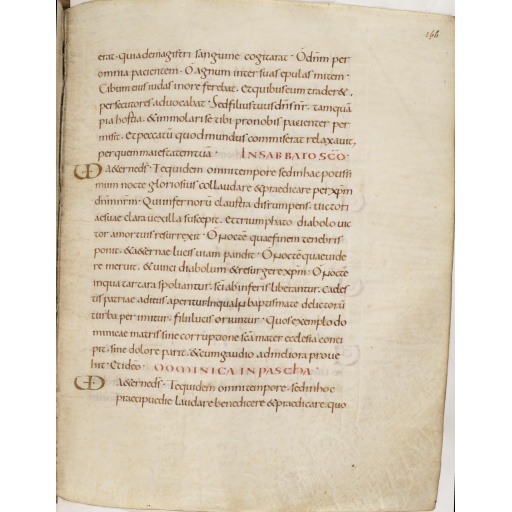 166
erat · quia demagistri sanguine cogitarat · O dñm per
omnia pacientem · O agnum inter suas epulas mitem ·
Cibum eius iudas in ore ferebat · Et quibus eum trader& ,
persecutores aduocabat · Sed filius tuus dñs nr̄ , tamquā
pia hostia , & immolari se tibi pro nobis pacienter per
misit , Et peccatū quod mundus commiserat relaxauit ,
per quem maiestatem tuam · IN SABBATO SCO ·
UD aeterne dš · Te quidem omni tempore sed in hac potissi
mum nocte gloriosius collaudare & praedicare per xp̄m
dñm nr̄m · Qui infernorū claustra disrumpens , uictori
ae suae clara uexilla suscepit , Et triumphato diabolo uic
tor a mortuis resurrexit · O noctē quae finem tenebris
ponit , & aeternae lucis uiam pandit · O noctē quae uide
re meruit , & uinci diabolum & resurgere xp̄m · O noctē
in qua tartara spoliantur , sc̄i ab inferis liberantur , caeles
tis patriae aditus aperitur · In qua ipsa baptismate delictorū
turba perimitur , filii lucis oriuntur · Quos exemplo do
minicae matris sine corruptione sc̄a mater ecclesia conci
pit , sine dolore parit , & cum gaudio ad meliora proue
hit · Et ideo · DOMINICA IN PASCHA ·
UD aeterne dš · Te quidem omni tempore , sed in hoc
praecipue die laudare benedicere & praedicare , quo